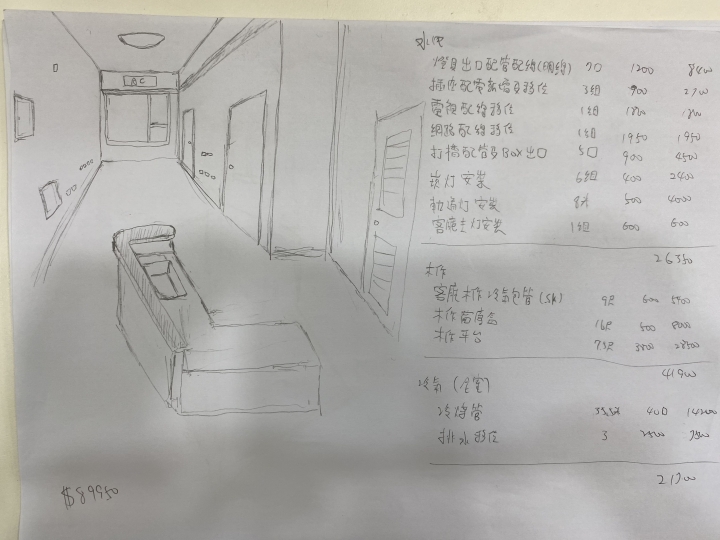 AC
水電
燈具出口配管配線(開線) 7口 1200 8400
插座配電新增及移位 3組 900 2700
電視配線移位 1組 1800 1800
網路配線移位 1組 1950 1950
打牆配管及Box出口 5口 900 4500
崁灯安裝 6組 400 2400
軌道灯安裝 8米 500 4000
客廳主灯安裝 1組 600 600
26350
木作
客廳木作冷氣包管 9尺 600 5400
木作窗簾盒 16尺 500 8000
木作平台 3800 28500
41900
冷氣(全室)
冷媒管 400 14200
排水移位 3 2500 7500
21700
$89950